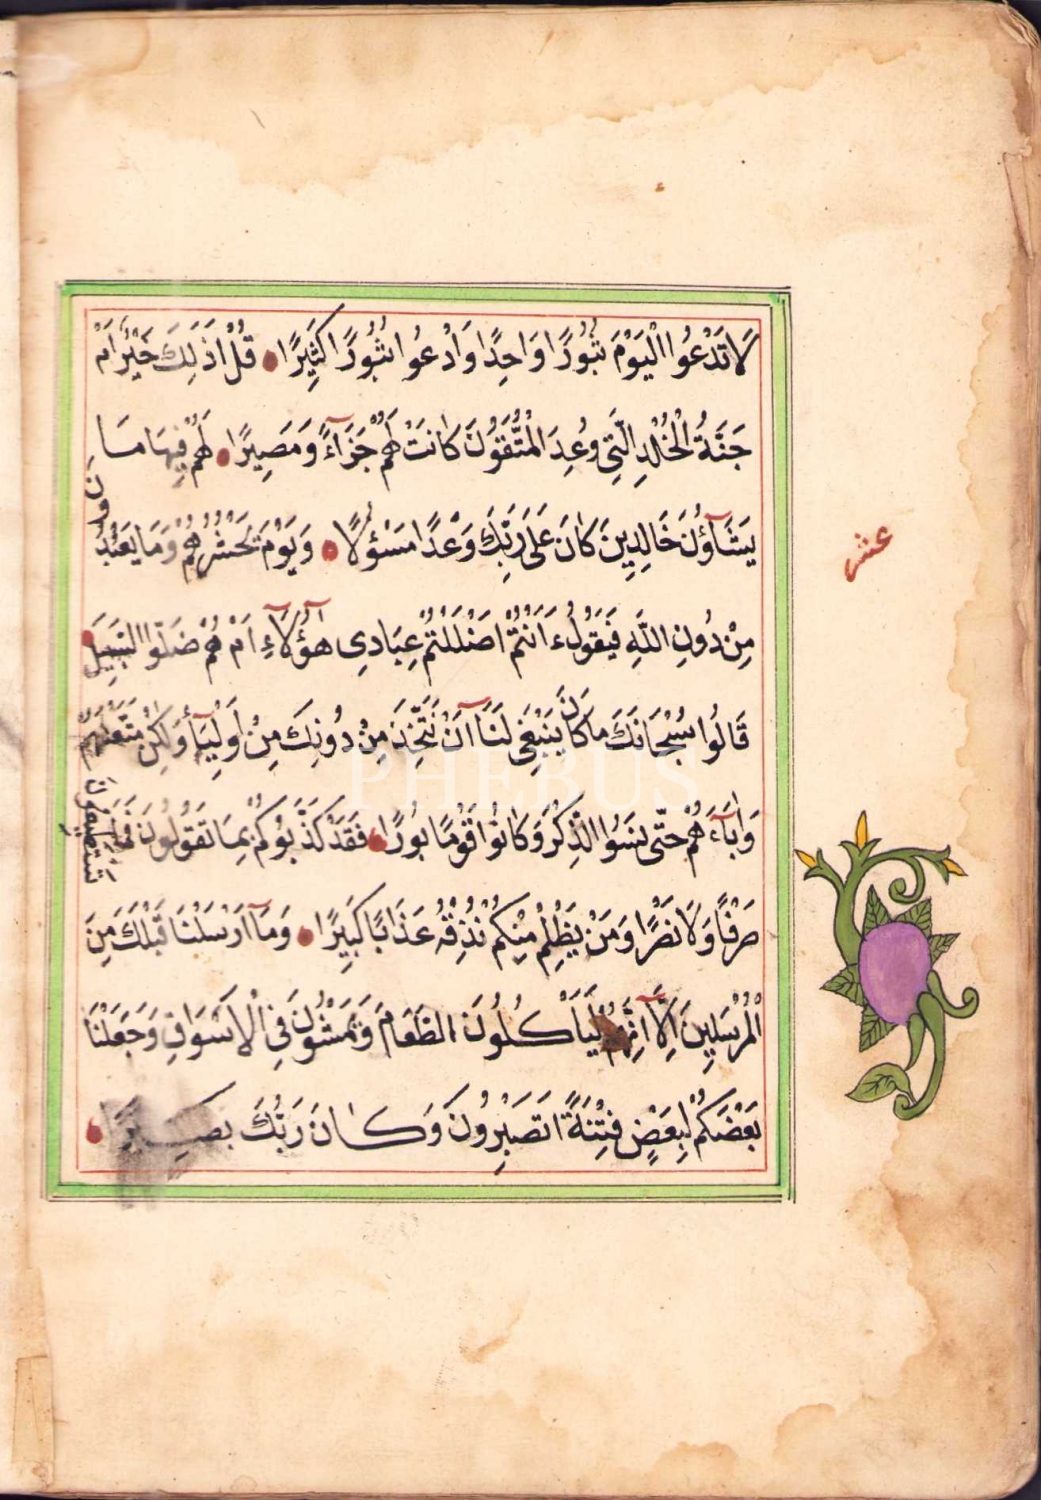 لَا تَدْعُوا الْيَوْمَ ثُبُورًا وَاحِدًا وَادْعُوا ثُبُورًا كَثِيرًا قُلْ اَذَلِكَ خَيْرٌ اَمْ
جَنَّةُ الْخُلْدِ الَّتِي وُعِدَ الْمُتَّقُونَ كَانَتْ لَهُمْ جَزَآءً وَمَصِيرًا لَهُمْ فِيهَا مَا
يَشَآؤُنَ خَالِدِينَ كَانَ عَلَى رَبِّكَ وَعْدًا مَسْؤُلًا وَيَوْمَ يَحْشُرُهُمْ وَمَا يَعْبُدُونَ
مِنْ دُونِ اللّٰهِ فَيَقُولُ ءَاَنْتُمْ اَضْلَلْتُمْ عِبَادِى هٰٓؤُلَآءِ اَمْ هُمْ ضَلُّوا السَّبِيلَ
قَالُوا سُبْحَانَكَ مَا كَانَ يَنْبَغِى لَنَآ اَنْ نَتَّخِذَ مِنْ دُونِكَ مِنْ اَوْلِيَآءَ وَلٰكِنْ مَتَّعْتَهُمْ
وَاٰبَآءَهُمْ حَتّٰى نَسُوا الذِّكْرَ وَكَانُوا قَوْمًا بُورًا فَقَدْ كَذَّبُوكُمْ بِمَا تَقُولُونَ فَمَا تَسْتَطِيعُونَ
صَرْفًا وَلَا نَصْرًا وَمَنْ يَظْلِمْ مِنْكُمْ نُذِقْهُ عَذَابًا كَبِيرًا وَمَآ اَرْسَلْنَا قَبْلَكَ مِنَ
الْمُرْسَلِينَ اِلَّآ اِنَّهُمْ لَيَأْكُلُونَ الطَّعَامَ وَيَمْشُونَ فِى الْاَسْوَاقِ وَجَعَلْنَا
بَعْضَكُمْ لِبَعْضٍ فِتْنَةً اَتَصْبِرُونَ وَكَانَ رَبُّكَ بَصِيرًا
عشر
PHEBUS